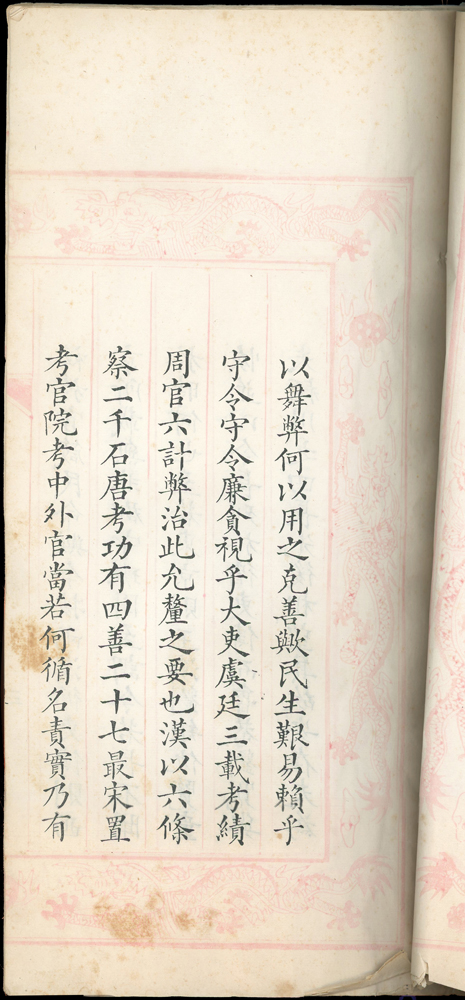 以舞弊何以用之克善歟民生艱易賴乎
守令守令廉貪視乎大吏虞廷三載考績
周官六計弊治此允釐之要也漢以六條
察二千石唐考功有四善二十七最宋置
考官院考中外官當若何循名責實乃有